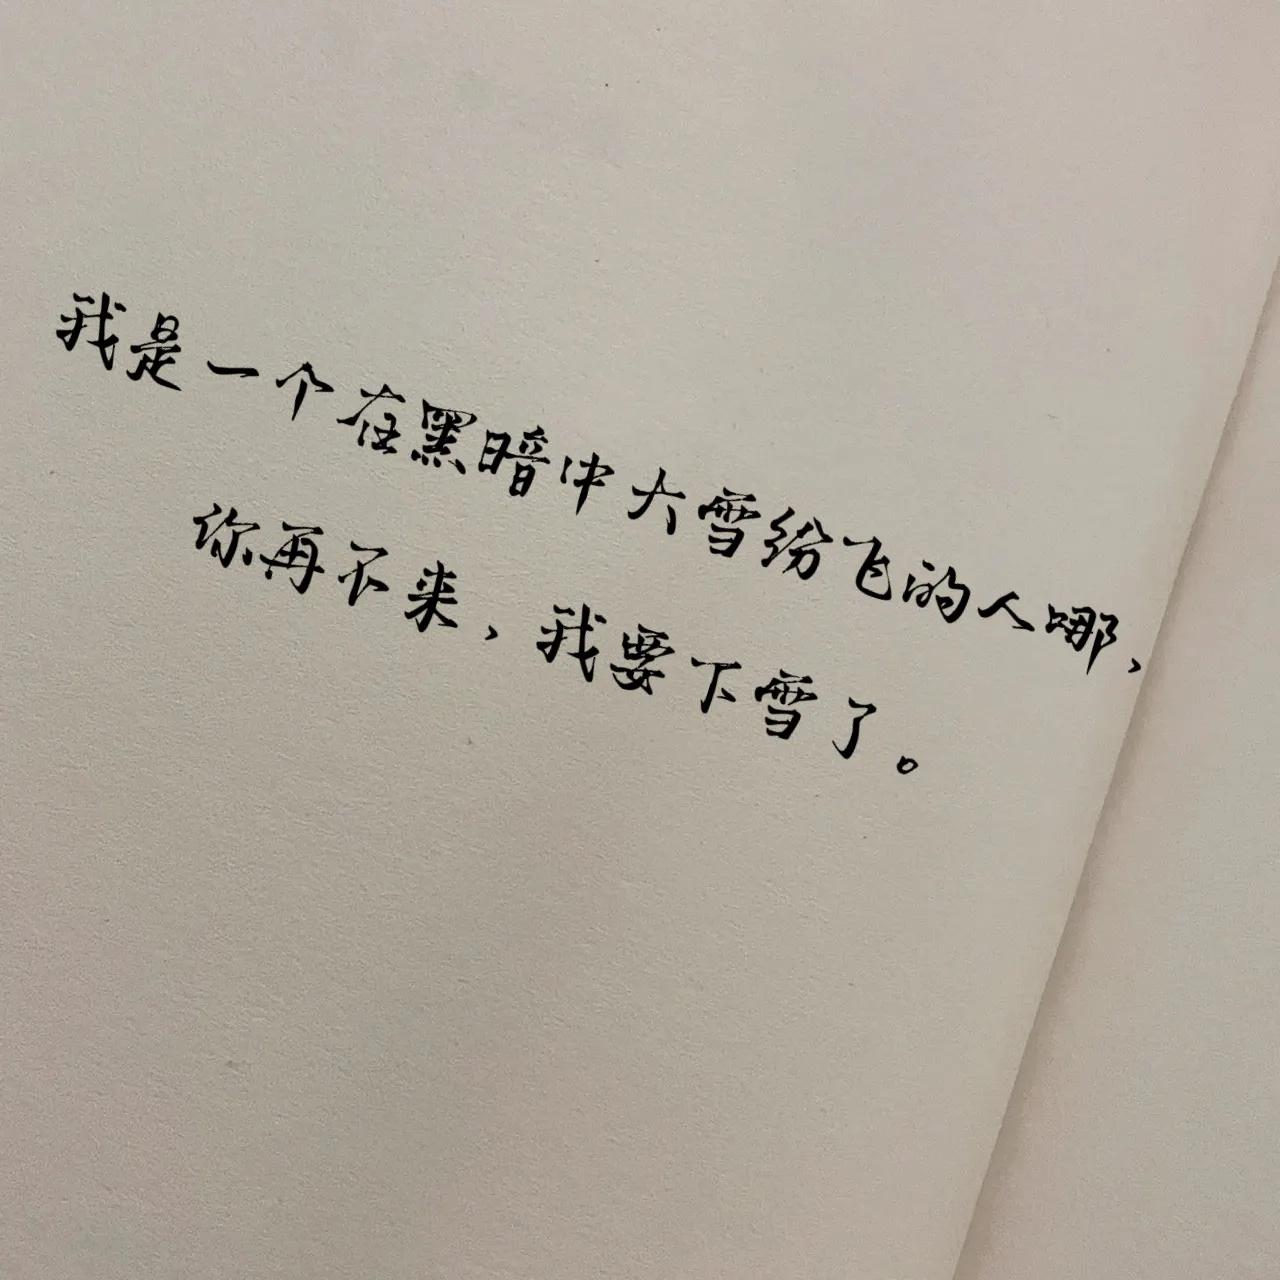 我是一个在黑暗中大雪纷飞的人哪，
你再不来，我要下雪了。